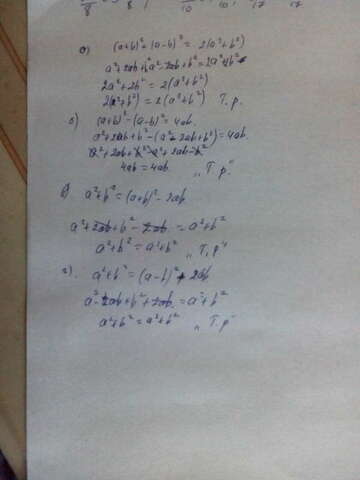 8 8 10 10 17 17
а) (a+b)²+(a-b)² = 2(a²+b²)
a²+2ab+b²+a²-2ab+b²=2a²+2b²
2a²+2b² = 2(a²+b²)
2(a²+b²) = 2(a²+b²) Т.р.
б) (a+b)²-(a-b)²=4ab.
a²+2ab+b²-(a²-2ab+b²)=4ab
a²+2ab+b²-a²+2ab-b²
4ab=4ab. „Т.р"
в) a²+b²=(a+b)²-2ab
a²+2ab+b²-2ab=a²+b²
a²+b²=a²+b² „Т,р"
г). a²+b²=(a-b)²+2ab
a²-2ab+b²+2ab=a²+b²
a²+b²=a²+b² „Т.р"